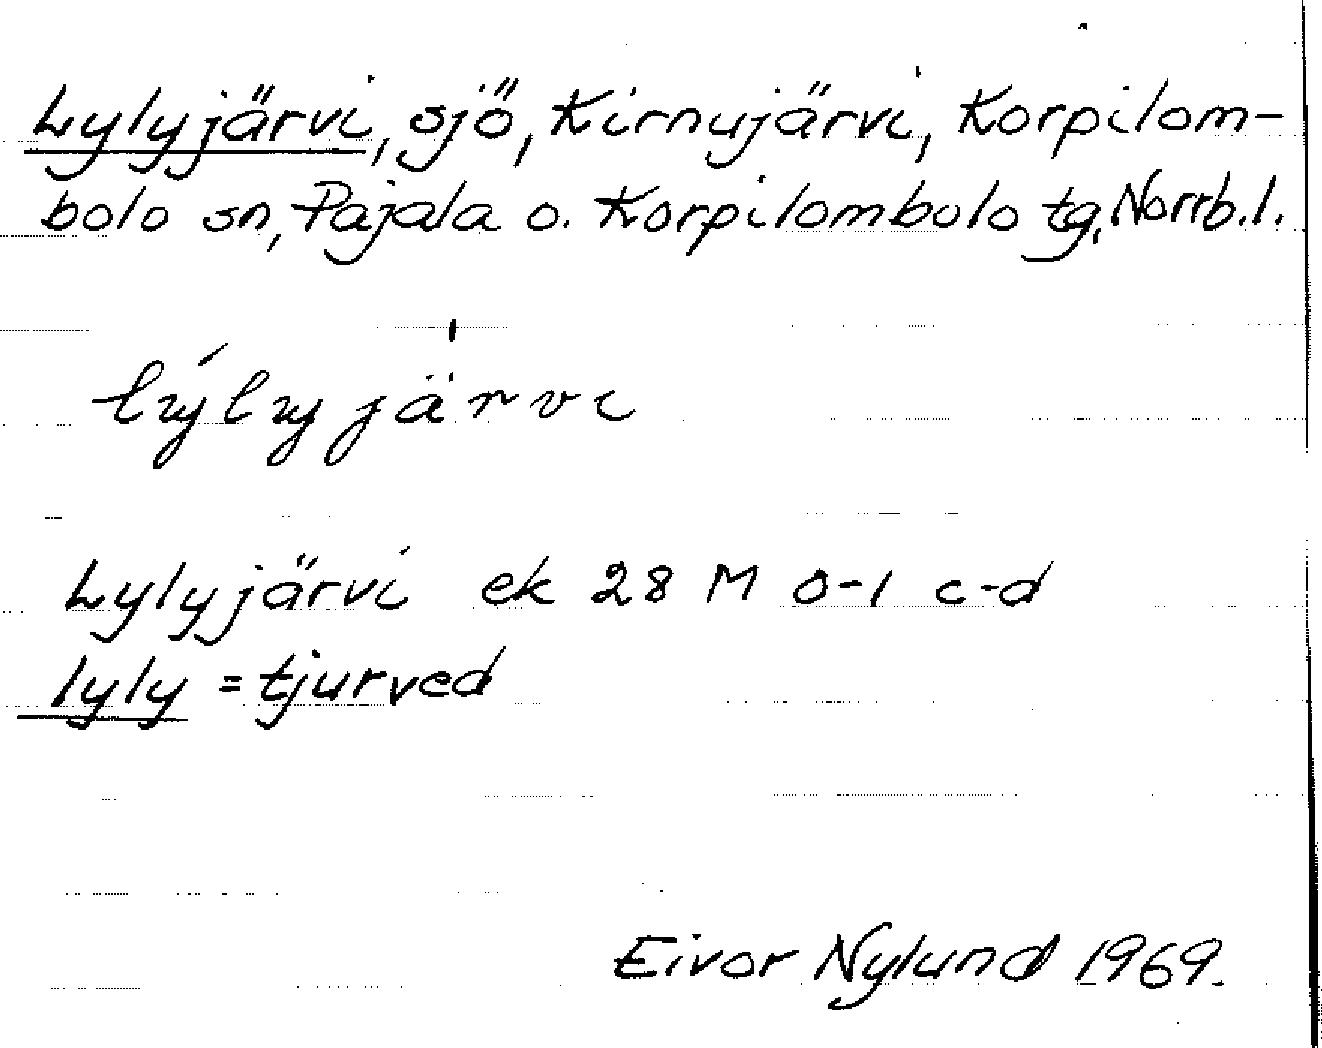 Lylyjärvi, sjö, Kirnujärvi, Korpilom-
bolo sn, Pajala o. Korpilombolo tg, Norrb. l.
lýlyjärvi
Lylyjärvi ek 28 M 0-1 c-d
lyly = tjurved
Eivor Nylund 1969.